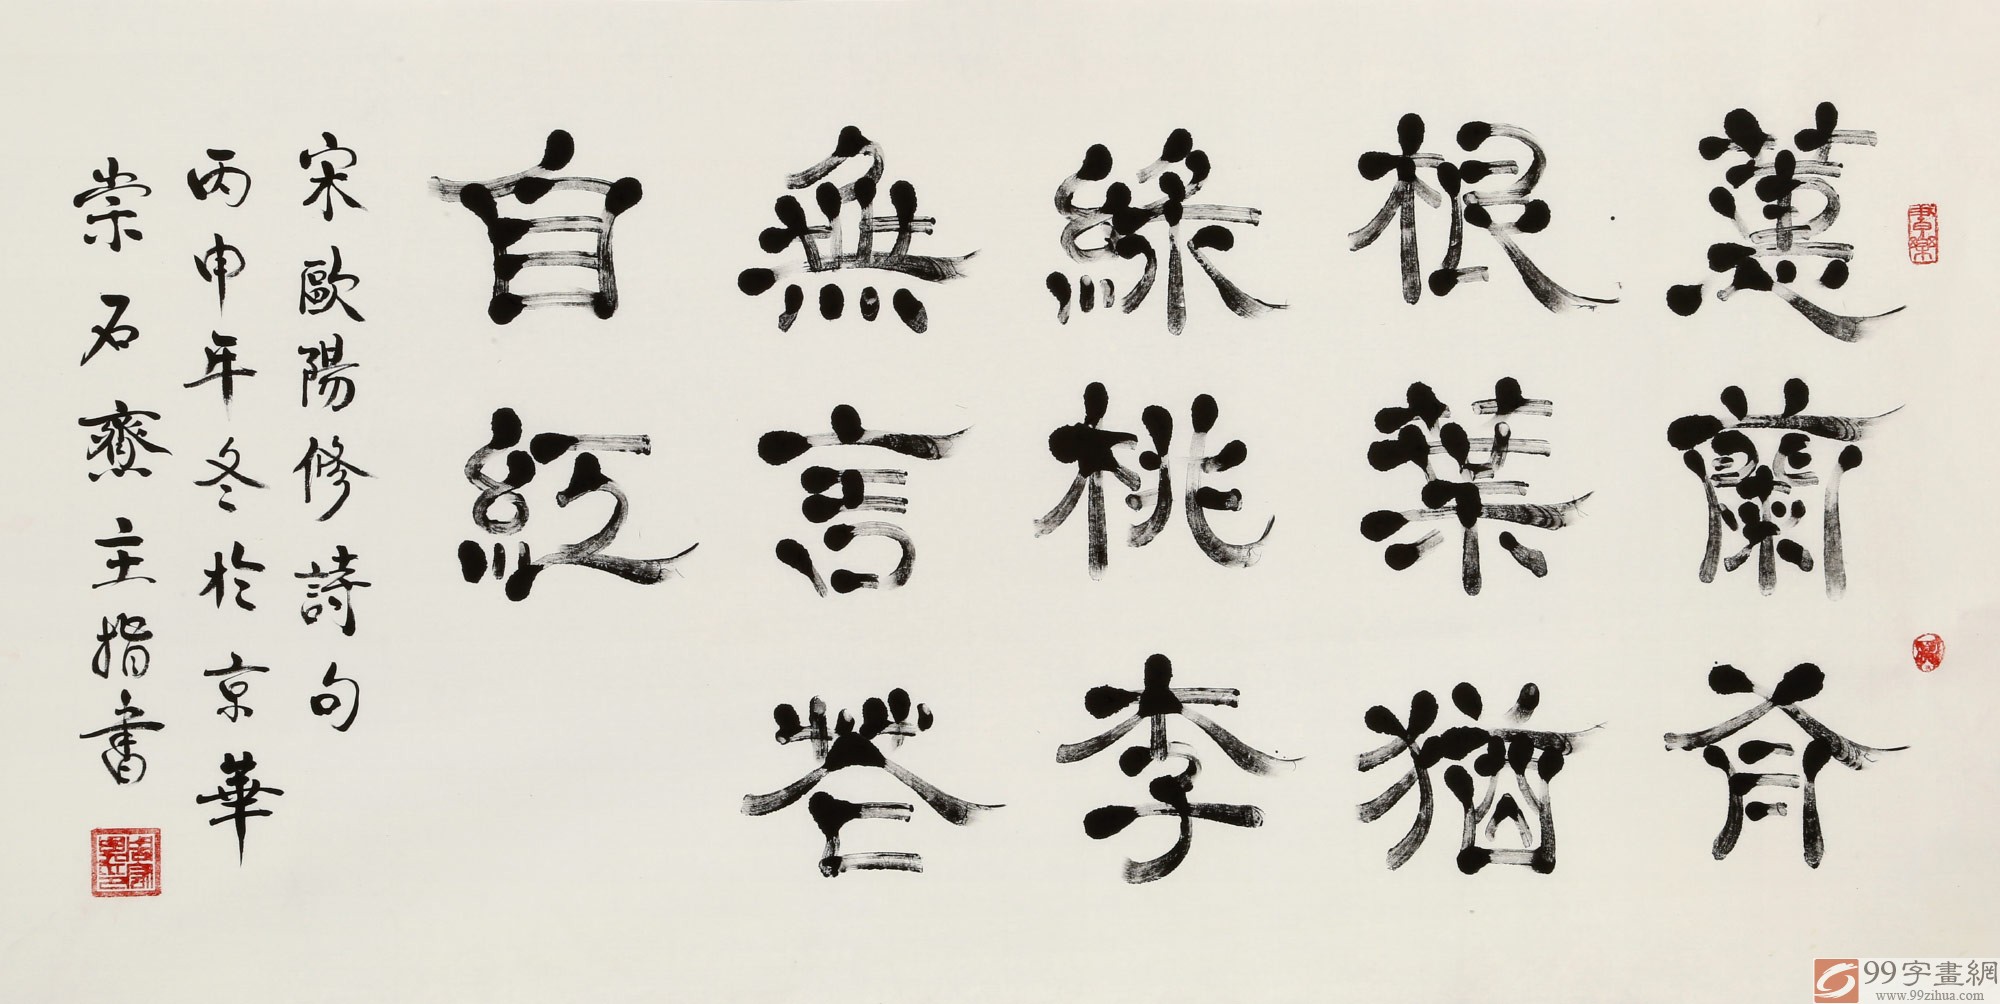 蕙蘭有
根葉猶
綠桃李
無言花
自紅
宋歐陽修詩句
丙申年冬於京華
崇石齋主指書
99字畫網
www.99zihua.com